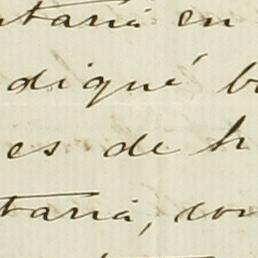 ntaria en
diqué b
es de h
taria, con